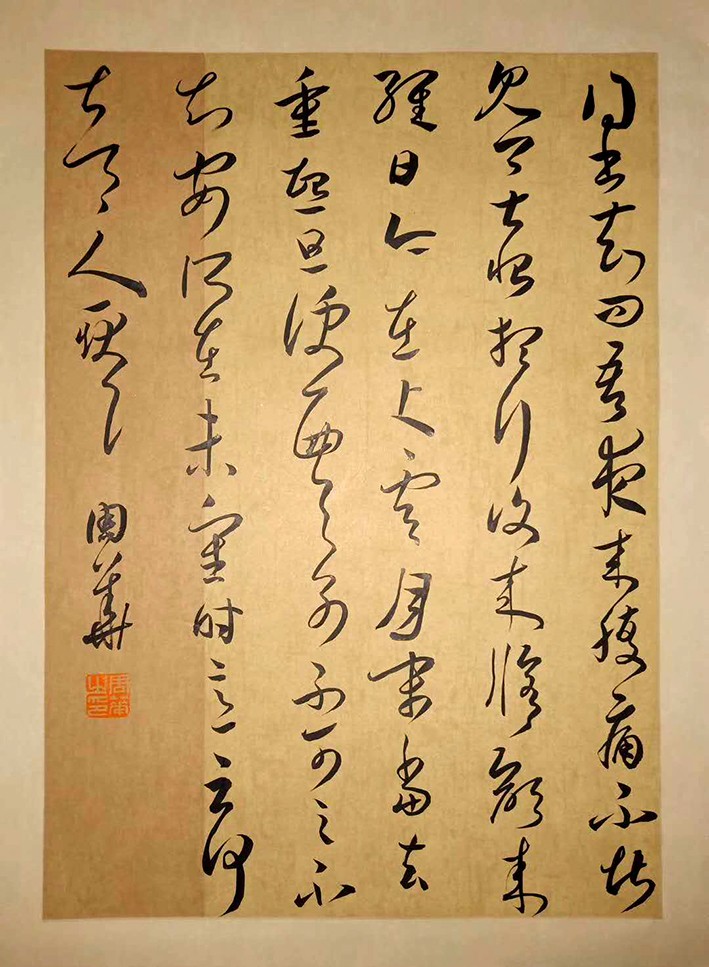 得書知問吾夜來腹痛不堪
見卿甚恨想行復來修齡來
經日今在上虞月末當去
重熙旦便西與別不可言不
知安所在未審時意云何
甚令人耿耿 周華